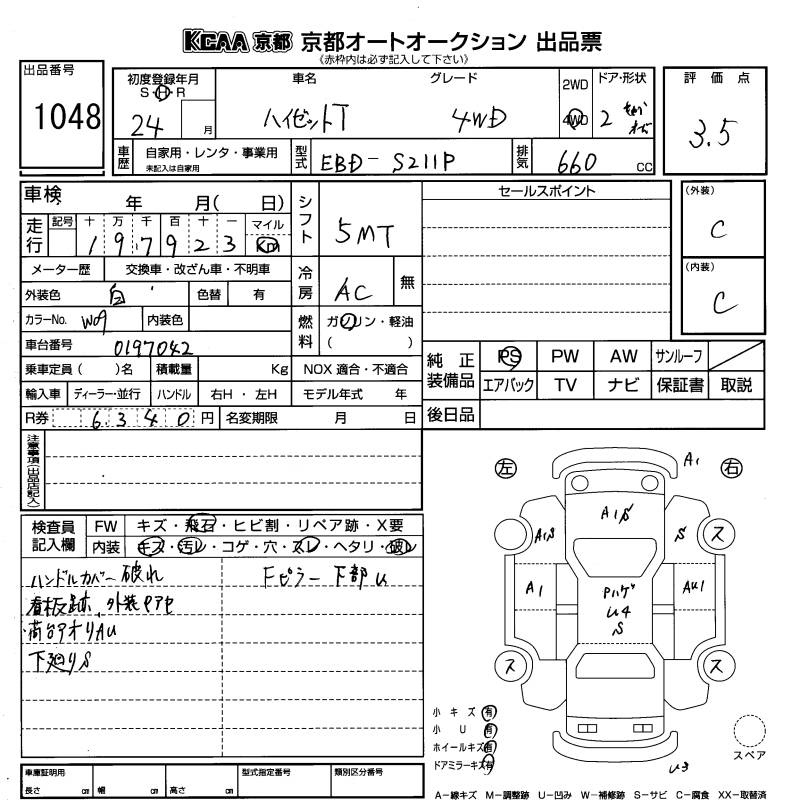 KCAA 京都 京都オートオークション 出品票
(赤枠内は必ず記入して下さい)
出品番号
1048
初度登録年月
S・H・R
24 月
車名
ハイゼットT
グレード
4WD
2WD
4WD
ドア・形状
2
評価点
3.5
車歴
自家用・レンタ・事業用
未記入は自家用
型式
EBD-S211P
排気
660 CC
車検 年 月( 日)
走行
記号 十 万 千 百 十 一 マイル
1 9 7 9 2 3 Km
シフト
5MT
セールスポイント
(外装)
C
(内装)
C
メーター歴 交換車・改ざん車・不明車
外装色 白 色替 有
冷房
AC 無
カラーNo. W09 内装色
燃料
ガソリン・軽油
( )
車台番号 0197042
乗車定員( )名 積載量 Kg NOX 適合・不適合
輸入車 ディーラー・並行 ハンドル 右H・左H モデル年式 年
R券 6340 円 名変期限 月 日
純正装備品
PS PW AW サンルーフ
エアバック TV ナビ 保証書 取説
後日品
注意事項(出品店記入)
左 右
検査員記入欄
FW キズ・飛石・ヒビ割・リペア跡・X要
内装 キズ・汚レ・コゲ・穴・スレ・ヘタリ・破レ
ハンドルカバー破れ
Fピラー下部U
看板跡、外装ヤアセ
荷台アオリAU
下廻りS
A1
A1S
A1S
S
ス
A1
Pハゲ
U4
S
AU1
ス
ス
小キズ 有
小U 有
ホイールキズ 有
ドアミラーキズ 有
スペア
U3
車庫証明用
長さ cm 幅 cm 高さ cm
型式指定番号
類別区分番号
A-線キズ M-調整跡 U-凹み W-補修跡 S-サビ C-腐食 XX-取替済